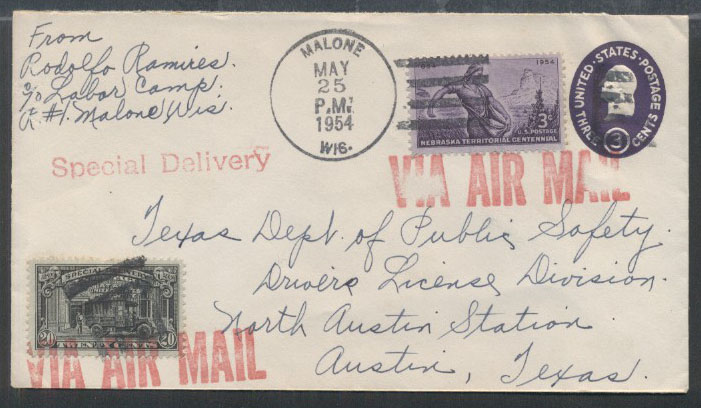 From
Rodolfo Ramires.
c/o Labor Camp.
R.#1. Malone Wis.
MALONE
MAY
25
P.M.
1954
WIS.
1954
3c
U.S. POSTAGE
NEBRASKA TERRITORIAL CENTENNIAL
UNITED·STATES·POSTAGE
THREE 3 CENTS
Special Delivery
VIA AIR MAIL
Texas Dept. of Public Safety.
Drivers License Division.
North Austin Station
Austin, Texas.
SPECIAL DELIVERY
20 20
VIA AIR MAIL